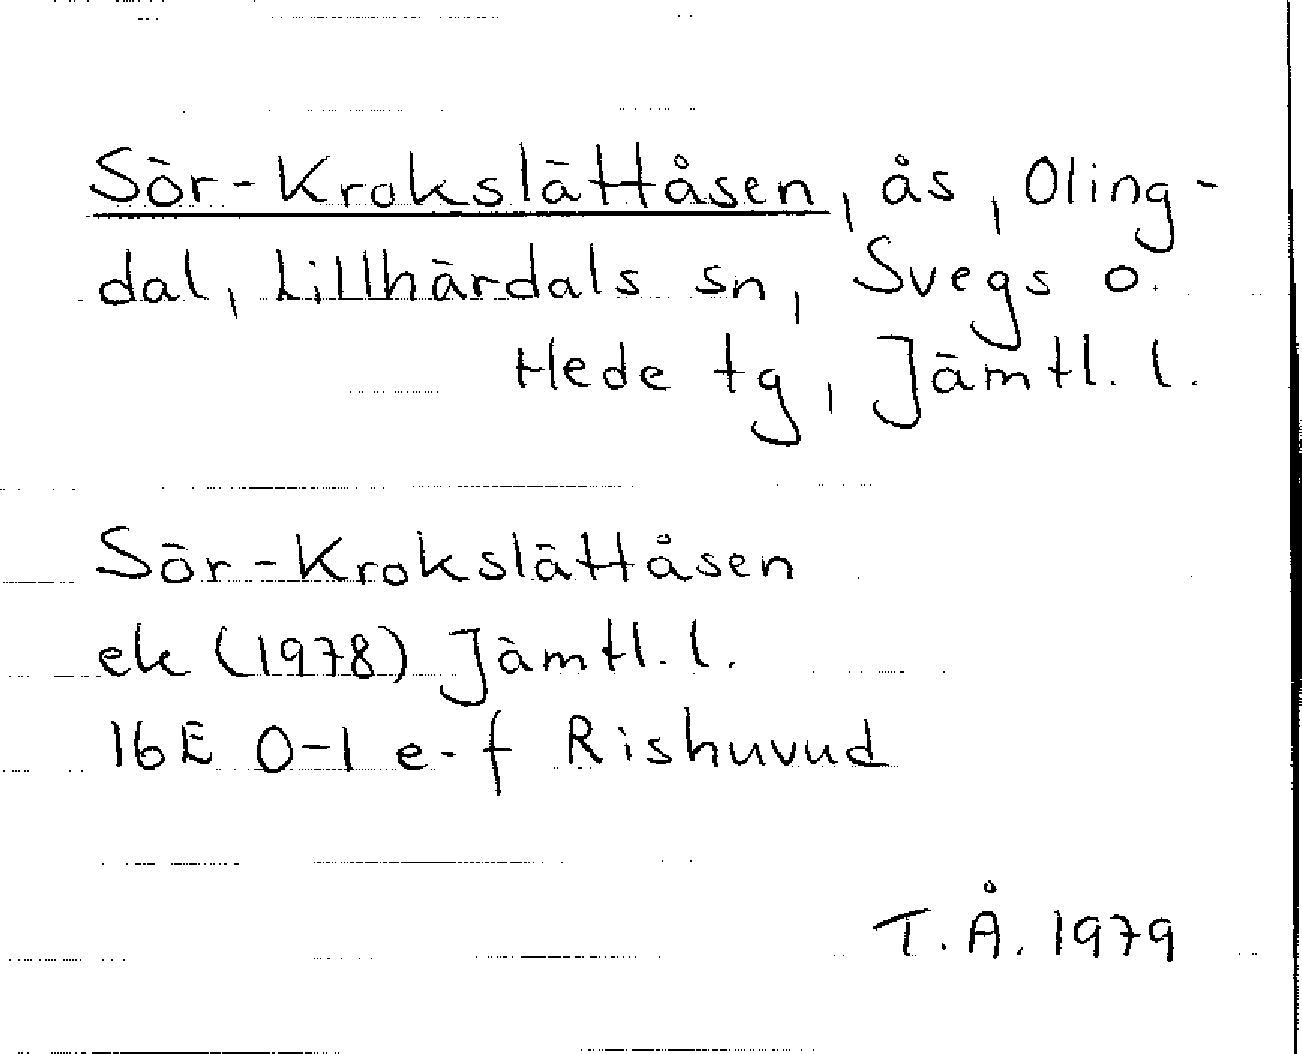 Sör-Krokslättåsen, ås, Oling-
dal, Lillhärdals sn, Svegs o.
Hede tg, Jämtl. l.
Sör-Krokslättåsen
ek (1978) Jämtl. l.
16E 0-1 e-f Rishuvud
T.Å. 1979